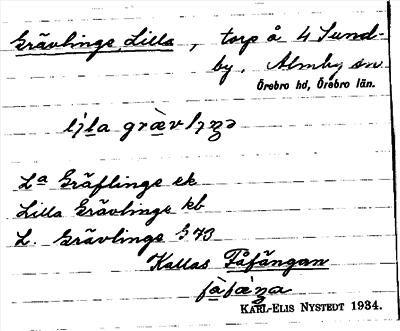 Grävlinge, Lilla, torp å 4 Sund-
by. Almby sn
Örebro hd, Örebro län.
La Gräflinge ek
Lilla Grävlinge kb
L. Grävlinge
Kallas Fåfängan
KARL-ELIS NYSTEDT 1934.